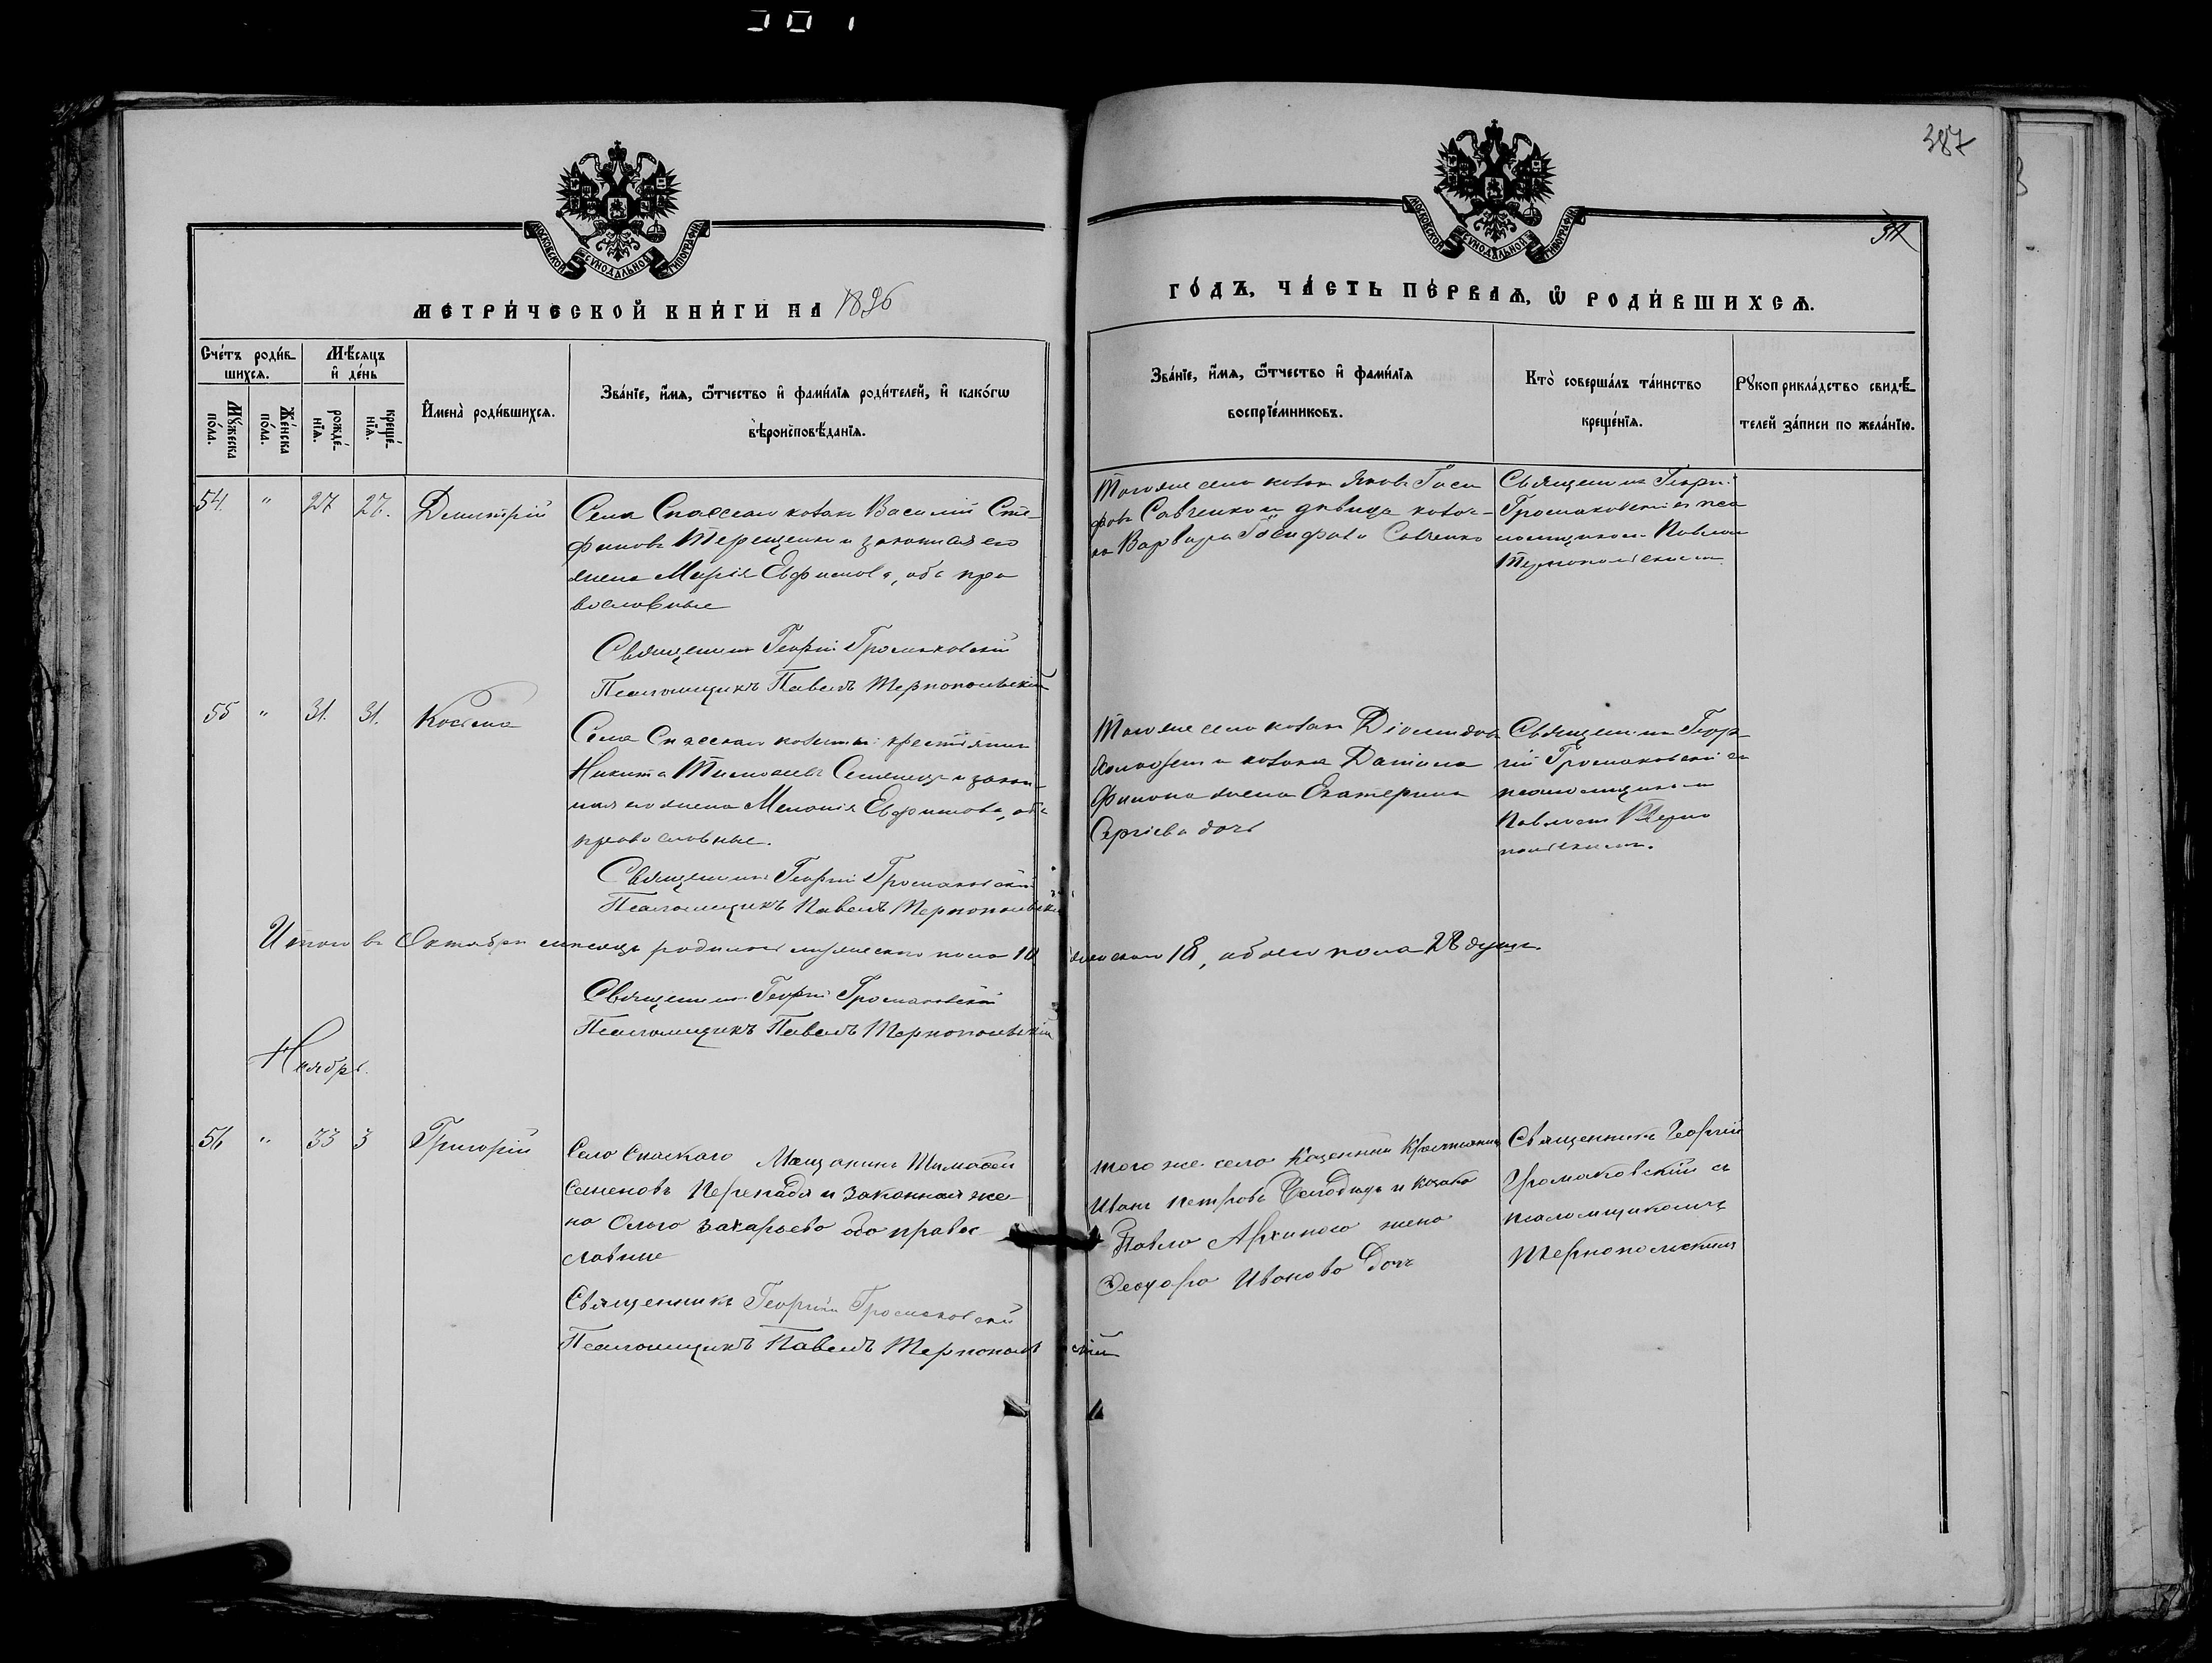 387
МОСКОВСКОЙ СѴНОДАЛЬНОЙ ТИПОГРАФІИ
МОСКОВСКОЙ СѴНОДАЛЬНОЙ ТИПОГРАФІИ
МЕТРИ́ЧЕСКОЙ КНИ́ГИ НА 1896
ГО́ДЪ, ЧА́СТЬ ПЕ́РВАѦ, Ѽ РОДИ́ВШИХСѦ.
Сче́тъ роди́в-
шихсѧ.
Мꙋ́жеска по́ла.
Же́нска по́ла.
Мѣ́сѧцъ
и҆ де́нь
рожде́-
нїѧ.
креще́-
нїѧ.
И҆мена̀ роди́вшихсѧ.
Зва́нїе, и҆́мѧ, ѻ҆́тчество и҆ фами́лїѧ роди́телей, и҆ како́гѡ
вѣроисповѣ́данїѧ.
Зва́нїе, и҆́мѧ, ѻ҆́тчество и҆ фами́лїѧ
воспрїе́мниковъ.
Кто̀ соверша́лъ та́инство
креще́нїѧ.
Рꙋкоприкла́дство свидѣ́-
телей за́писи по жела́нїю.
54. " 27 27. Димитрій
Села Спасскаго козак Василій Сте-
фанов Терещенко и законная его
жена Марія Евфимова, оба пра
вославные
Священник Георгій Громаковскій
Псаломщикъ Павелъ Тернопольскій
Того же села козак Яков Іоси
фов Савченко и девица козач-
ка Варвара Іосифова Савченко
Священник Георгій
Громаковскій с пса
ломщиком Павлом
Тернопольским
55 " 31. 31. Косьма
Села Спасскаго крестянин
Никита Тимофеев Семенец и закон
ная его жена Меланія Евфимова, оба
православные.
Священник Георгій Громаковскій
Псаломщикъ Павелъ Тернопольскій
Того же села козак Діомидов
и козака Даніила
Филипа жена Екатерина
Сергіева дочь
Священник Геор
гій Громаковскій с
псаломщиком
Павлом Терно
польским.
Итого в Октябре месяце родилось мужеского пола 10
женского 18, обоего пола 28 душ.
Священник Георгій Громаковскій
Псаломщикъ Павелъ Тернопольскій
Ноябрь.
56 " 33 3 Григорій
Село Спаскаго Мещанин Тимофей
Семенов Перепадя и законная же-
на Ольга Захарьева обо правос
лавные
Священникъ Георгій Громаковскій
Псаломщикъ Павелъ Тернопольскій
того же села Казенный Крестянин
Иван Петров и козака
Павла Архипова жена
Феодора Иванова дочь
Священникъ Георгій
Громаковскій съ
псаломщикомъ
Тернопольскимъ